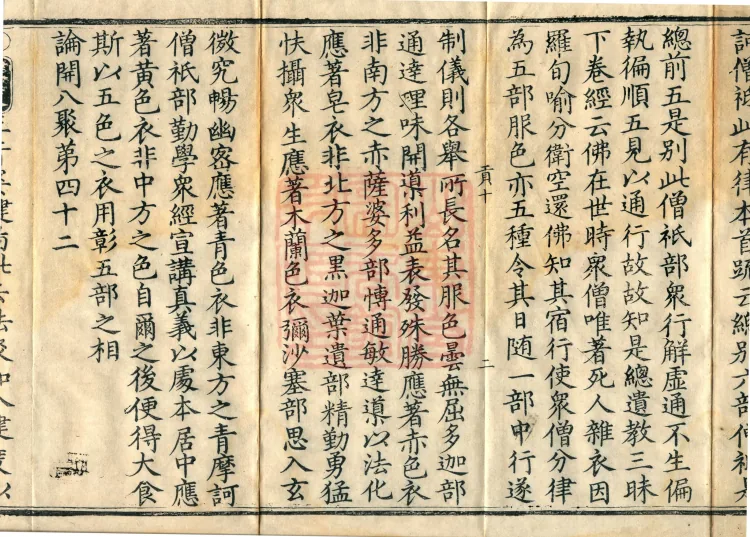 訶僧祇此有律本首
總前五是別此僧祇部衆行解虛通不生偏
執徧順五見以通行故故知是總遺教三昧
下卷經云佛在世時衆僧唯著死人雜衣因
羅旬喻分衛空還佛知其宿行使衆僧分律
為五部服色亦五種令其日随一部中行遂
貢十 二
制儀則各舉所長名其服色曇無屈多迦部
通達理味開導利益表發殊勝應著赤色衣
非南方之赤薩婆多部博通敏達導以法化
應著皂衣非北方之黒迦葉遺部精勤勇猛
快攝衆生應著木蘭色衣彌沙塞部思入玄
微究暢幽宻應著青色衣非東方之青摩訶
僧祇部勤學衆經宣講真義以處本居中應
著黃色衣非中方之色自爾之後便得大食
斯以五色之衣用彰五部之相
論開八聚第四十二